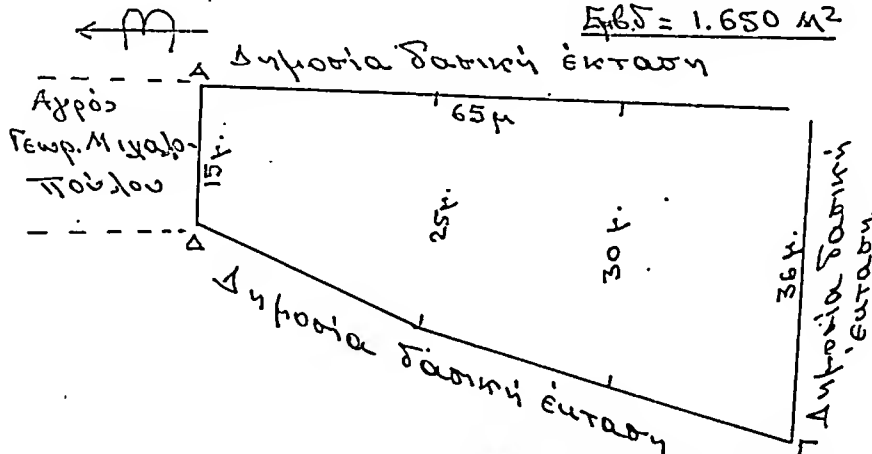 Εμβδ = 1.650 м²
Β
Α
Δημοσία δασική έκταση
65μ
Αγρός
Γεωρ. Μιχαλο-
πούλου
15μ.
25μ.
30μ.
36μ.
Δημοσία δασική
έκταση
Δ
Δημοσία δασική έκταση
Γ